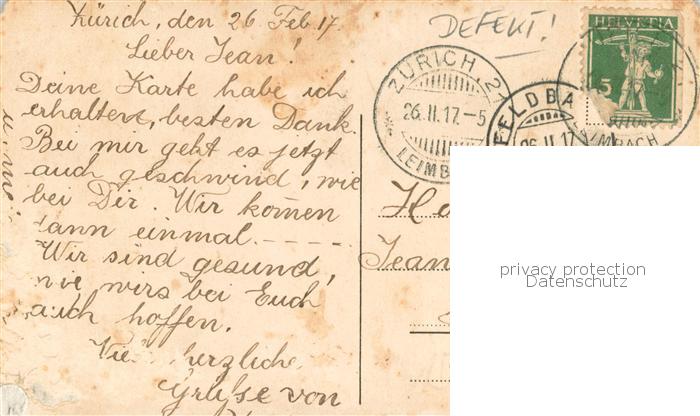 Zürich, den 26. Feb. 17.
Lieber Jean!
Deine Karte habe ich
erhalten, besten Dank.
Bei mir geht es jetzt
auch geschwind, wie
bei Dir. Wir kom̄en
dann einmal.
Wir sind gesund,
wie wirs bei Euch
auch hoffen.
herzliche
Grüsse von
DEFEKT!
ZÜRICH 2
26.II.17.-5
LEIMB
HELVETIA
5
FELDBA
26.II.17
LEIMBACH
Jean
privacy protection
Datenschutz